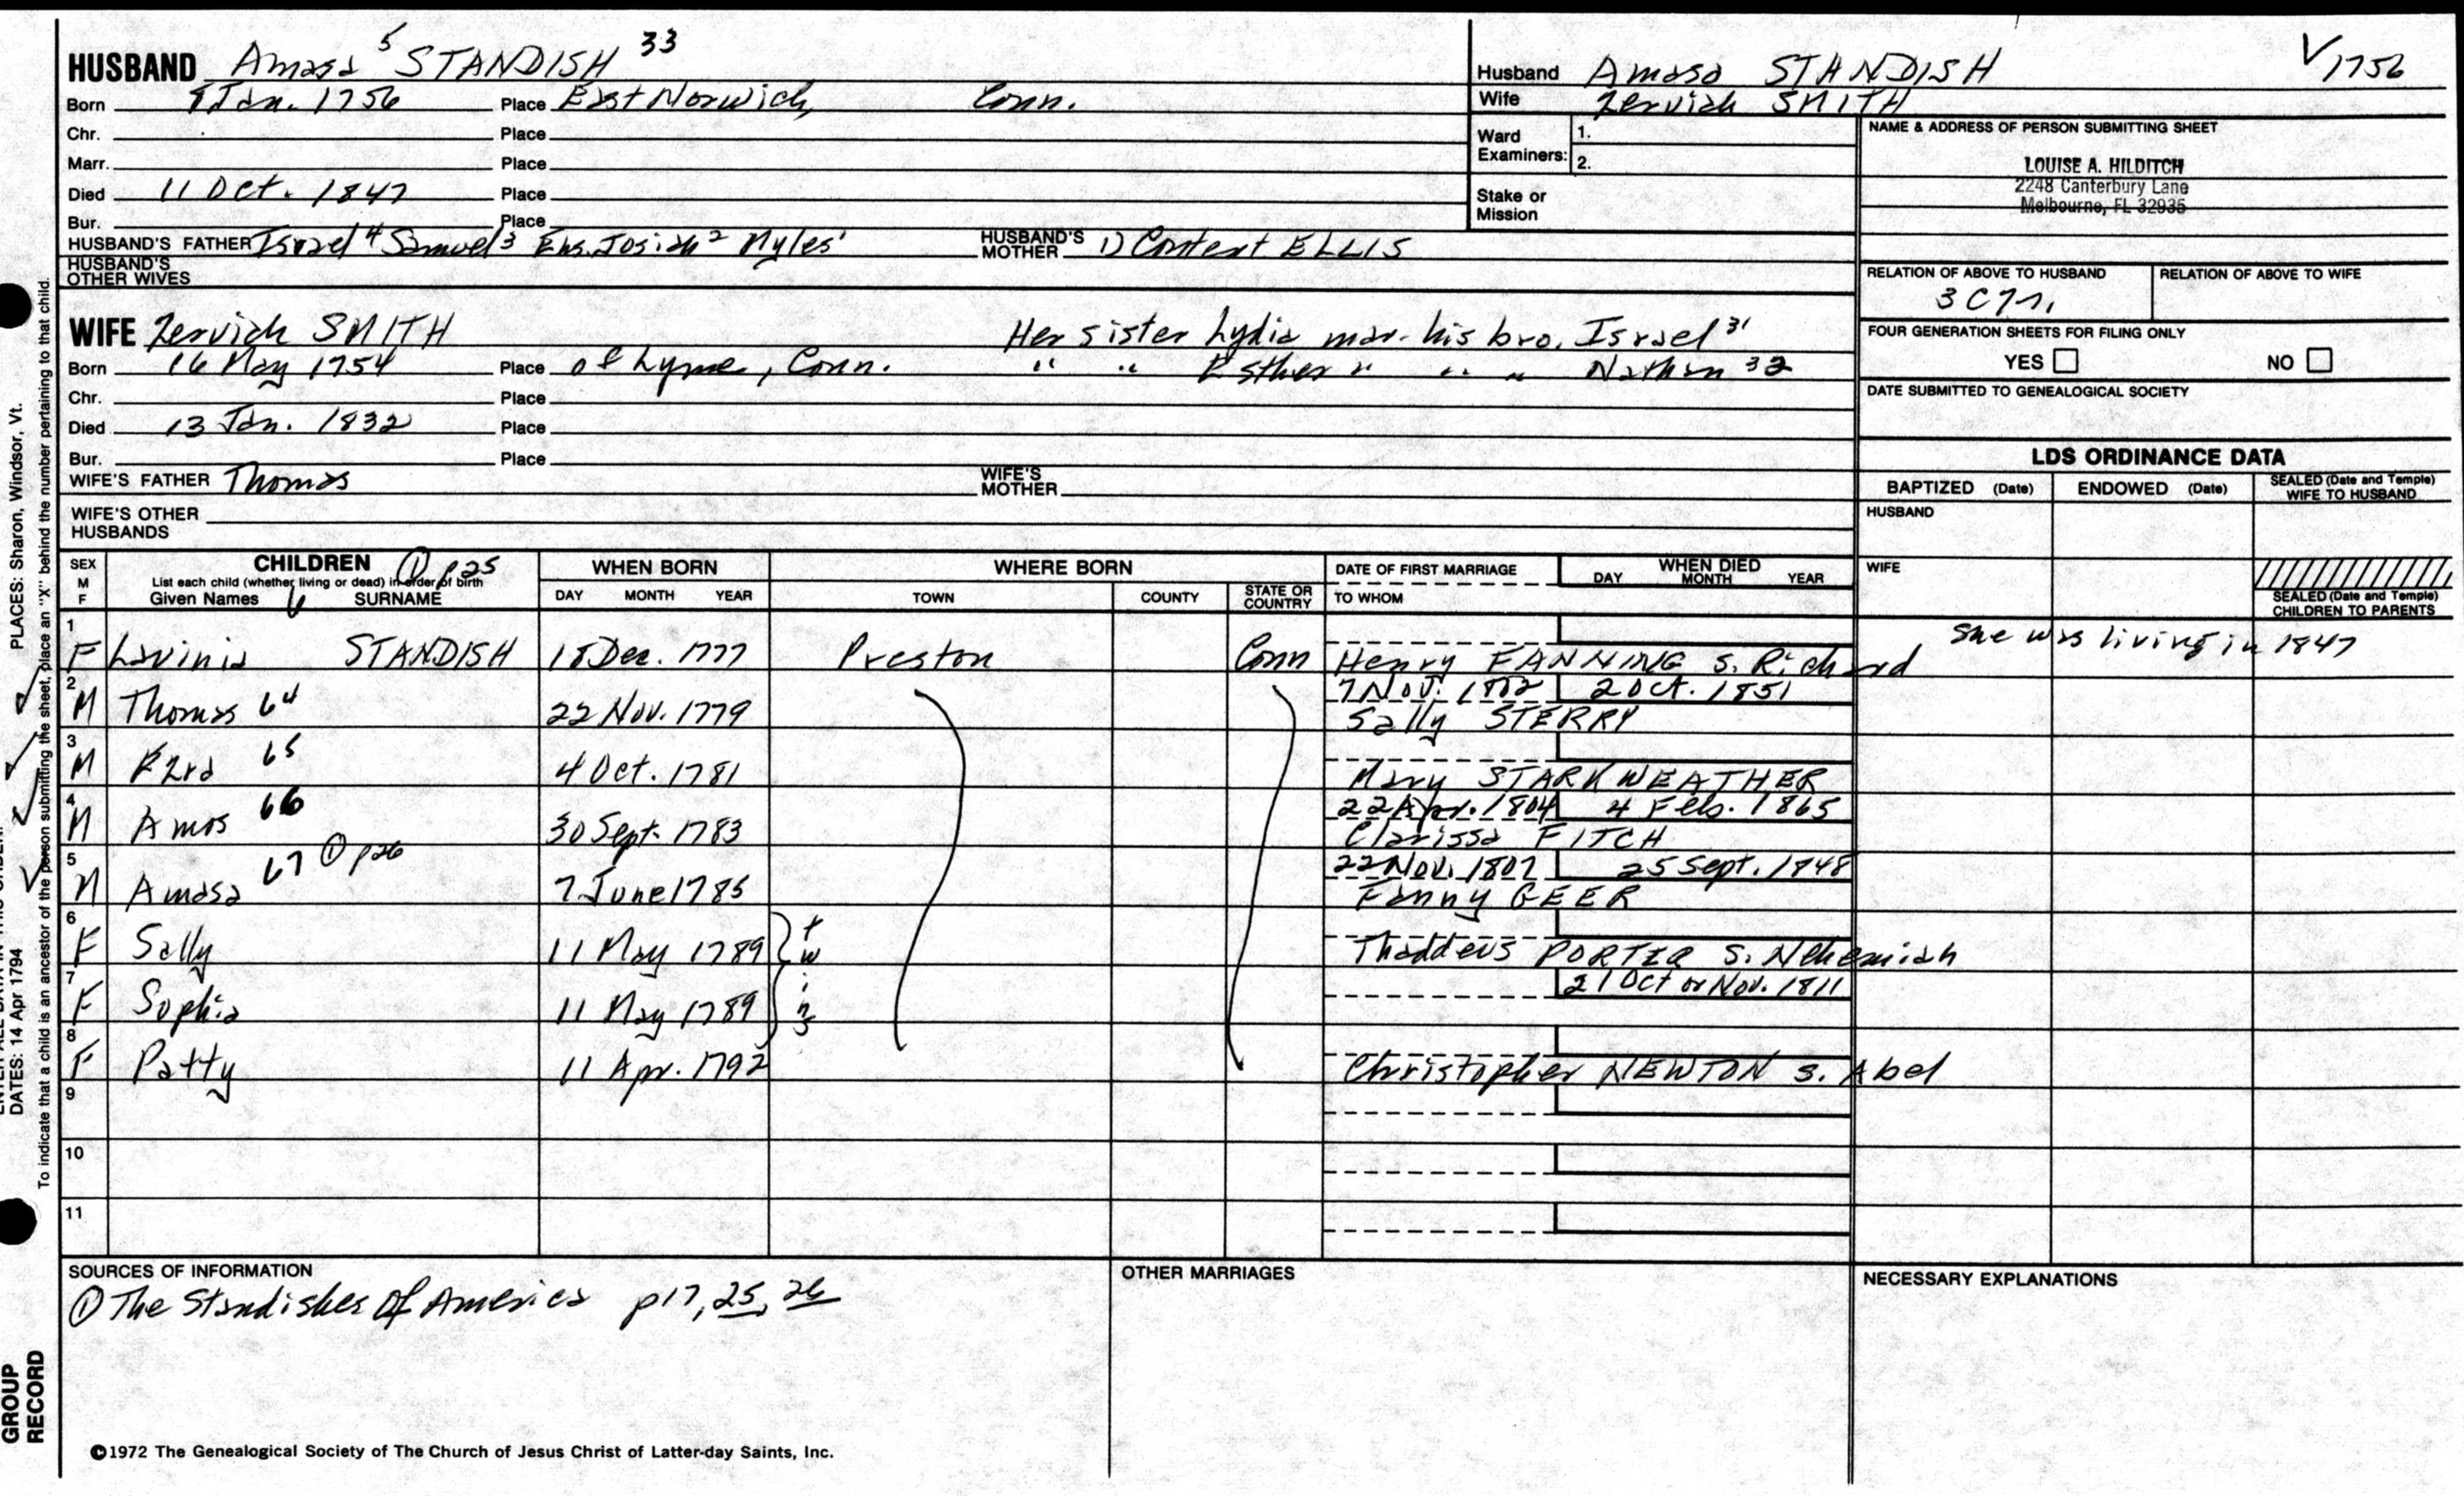 HUSBAND Amasa 5 STANDISH 33
Born 8 Jan. 1756 Place East Norwich, Conn.
Chr. Place
Marr. Place
Died 11 Oct. 1847 Place
Bur. Place
HUSBAND'S FATHER Israel 4 Samuel 3 Ens. Josiah 2 Myles 1 HUSBAND'S MOTHER 1) Content ELLIS
HUSBAND'S OTHER WIVES
Husband Amasa STANDISH V 1756
Wife Zerviah SMITH
Ward Examiners: 1.
2.
Stake or Mission
NAME & ADDRESS OF PERSON SUBMITTING SHEET
LOUISE A. HILDITCH
2248 Canterbury Lane
Melbourne, FL 32935
RELATION OF ABOVE TO HUSBAND RELATION OF ABOVE TO WIFE
3C7r.
WIFE Zerviah SMITH Her sister Lydia mar. his bro. Israel 31
Born 16 May 1754 Place of Lyme, Conn. " " Esther " " " Nathan 32
Chr. Place
Died 13 Jan. 1832 Place
Bur. Place
WIFE'S FATHER Thomas WIFE'S MOTHER
WIFE'S OTHER HUSBANDS
FOUR GENERATION SHEETS FOR FILING ONLY
YES NO
DATE SUBMITTED TO GENEALOGICAL SOCIETY
LDS ORDINANCE DATA
BAPTIZED (Date) ENDOWED (Date) SEALED (Date and Temple) WIFE TO HUSBAND
HUSBAND
WIFE
SEALED (Date and Temple) CHILDREN TO PARENTS
SEX M F
CHILDREN ① p25
List each child (whether living or dead) in order of birth
Given Names 6 SURNAME
WHEN BORN
DAY MONTH YEAR
WHERE BORN
TOWN COUNTY STATE OR COUNTRY
DATE OF FIRST MARRIAGE
TO WHOM
WHEN DIED
DAY MONTH YEAR
1
F Lavinia STANDISH 18 Dec. 1777 Preston Conn Henry FANNING s. Richard She was living in 1847
2 7 Nov. 1802 2 Oct. 1851
M Thomas 64 22 Nov. 1779 Sally STERRY
3
M Ezra 65 4 Oct. 1781 Mary STARKWEATHER
4 22 Apr. 1804 4 Feb. 1865
M Amos 66 30 Sept. 1783 Clarissa FITCH
5 22 Nov. 1807 25 Sept. 1848
M Amasa 67 ① p26 7 June 1785 Fanny GEER
6
F Sally 11 May 1789 twins Thaddeus PORTER s. Nehemiah
7 21 Oct or Nov. 1811
F Sophia 11 May 1789
8
F Patty 11 Apr. 1792 Christopher NEWTON s. Abel
9
10
11
SOURCES OF INFORMATION
① The Standishes Of America p17, 25, 26
OTHER MARRIAGES
NECESSARY EXPLANATIONS
©1972 The Genealogical Society of The Church of Jesus Christ of Latter-day Saints, Inc.
PLACES: Sharon, Windsor, Vt.
DATES: 14 Apr 1794
To indicate that a child is an ancestor of the person submitting the sheet, place an "X" behind the number pertaining to that child.
GROUP
RECORD